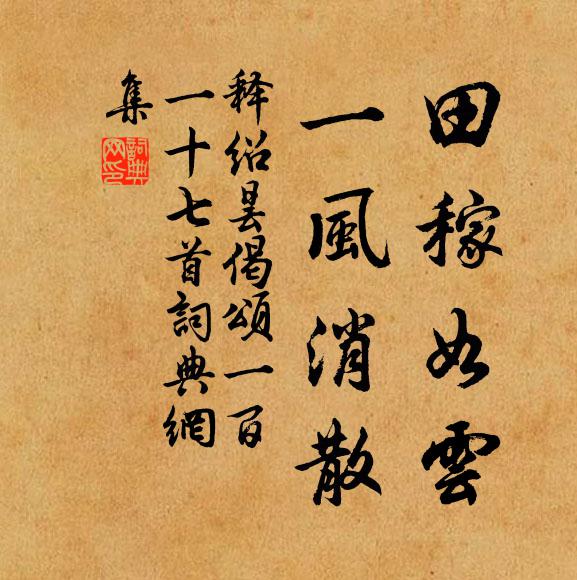 田稼如雲
一風消散
释绍昙偈頌一百
一十七首詞典網
集
詞典
网印